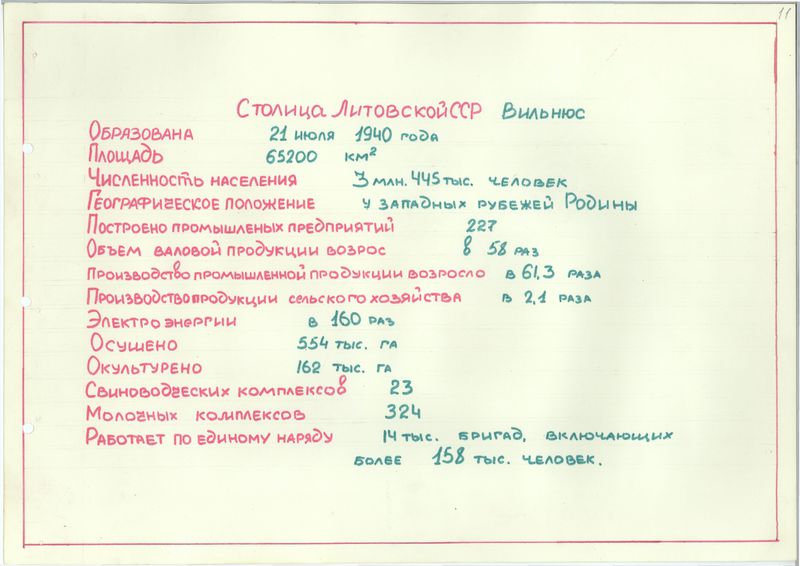 11
Столица Литовской ССР Вильнюс
Образована 21 июля 1940 года
Площадь 65200 км²
Численность населения 3 млн. 445 тыс. человек
Географическое положение у западных рубежей Родины
Построено промышленых предприятий 227
Объем валовой продукции возрос в 58 раз
Производство промышленной продукции возросло в 61,3 раза
Производство продукции сельского хозяйства в 2,1 раза
Электро энергии в 160 раз
Осушено 554 тыс. га
Окультурено 162 тыс. га
Свиноводческих комплексов 23
Молочных комплексов 324
Работает по единому наряду 14 тыс. бригад, включающих
более 158 тыс. человек.